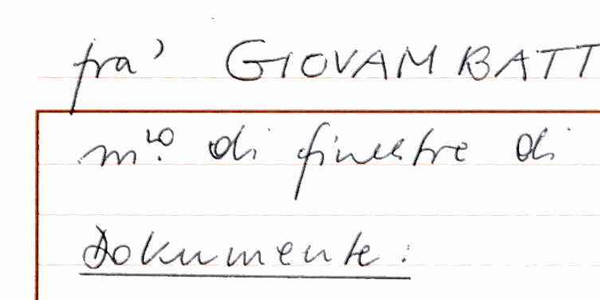 fra' GIOVAM BATT
m.ro di finestre di
Dokumente: